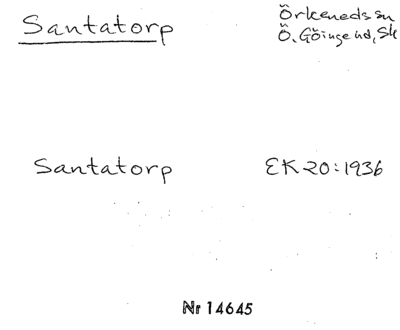 Santatorp
Örkeneds sn
Ö. Göinge hd, Sk
Santatorp
EK 20:1936
Nr 14645